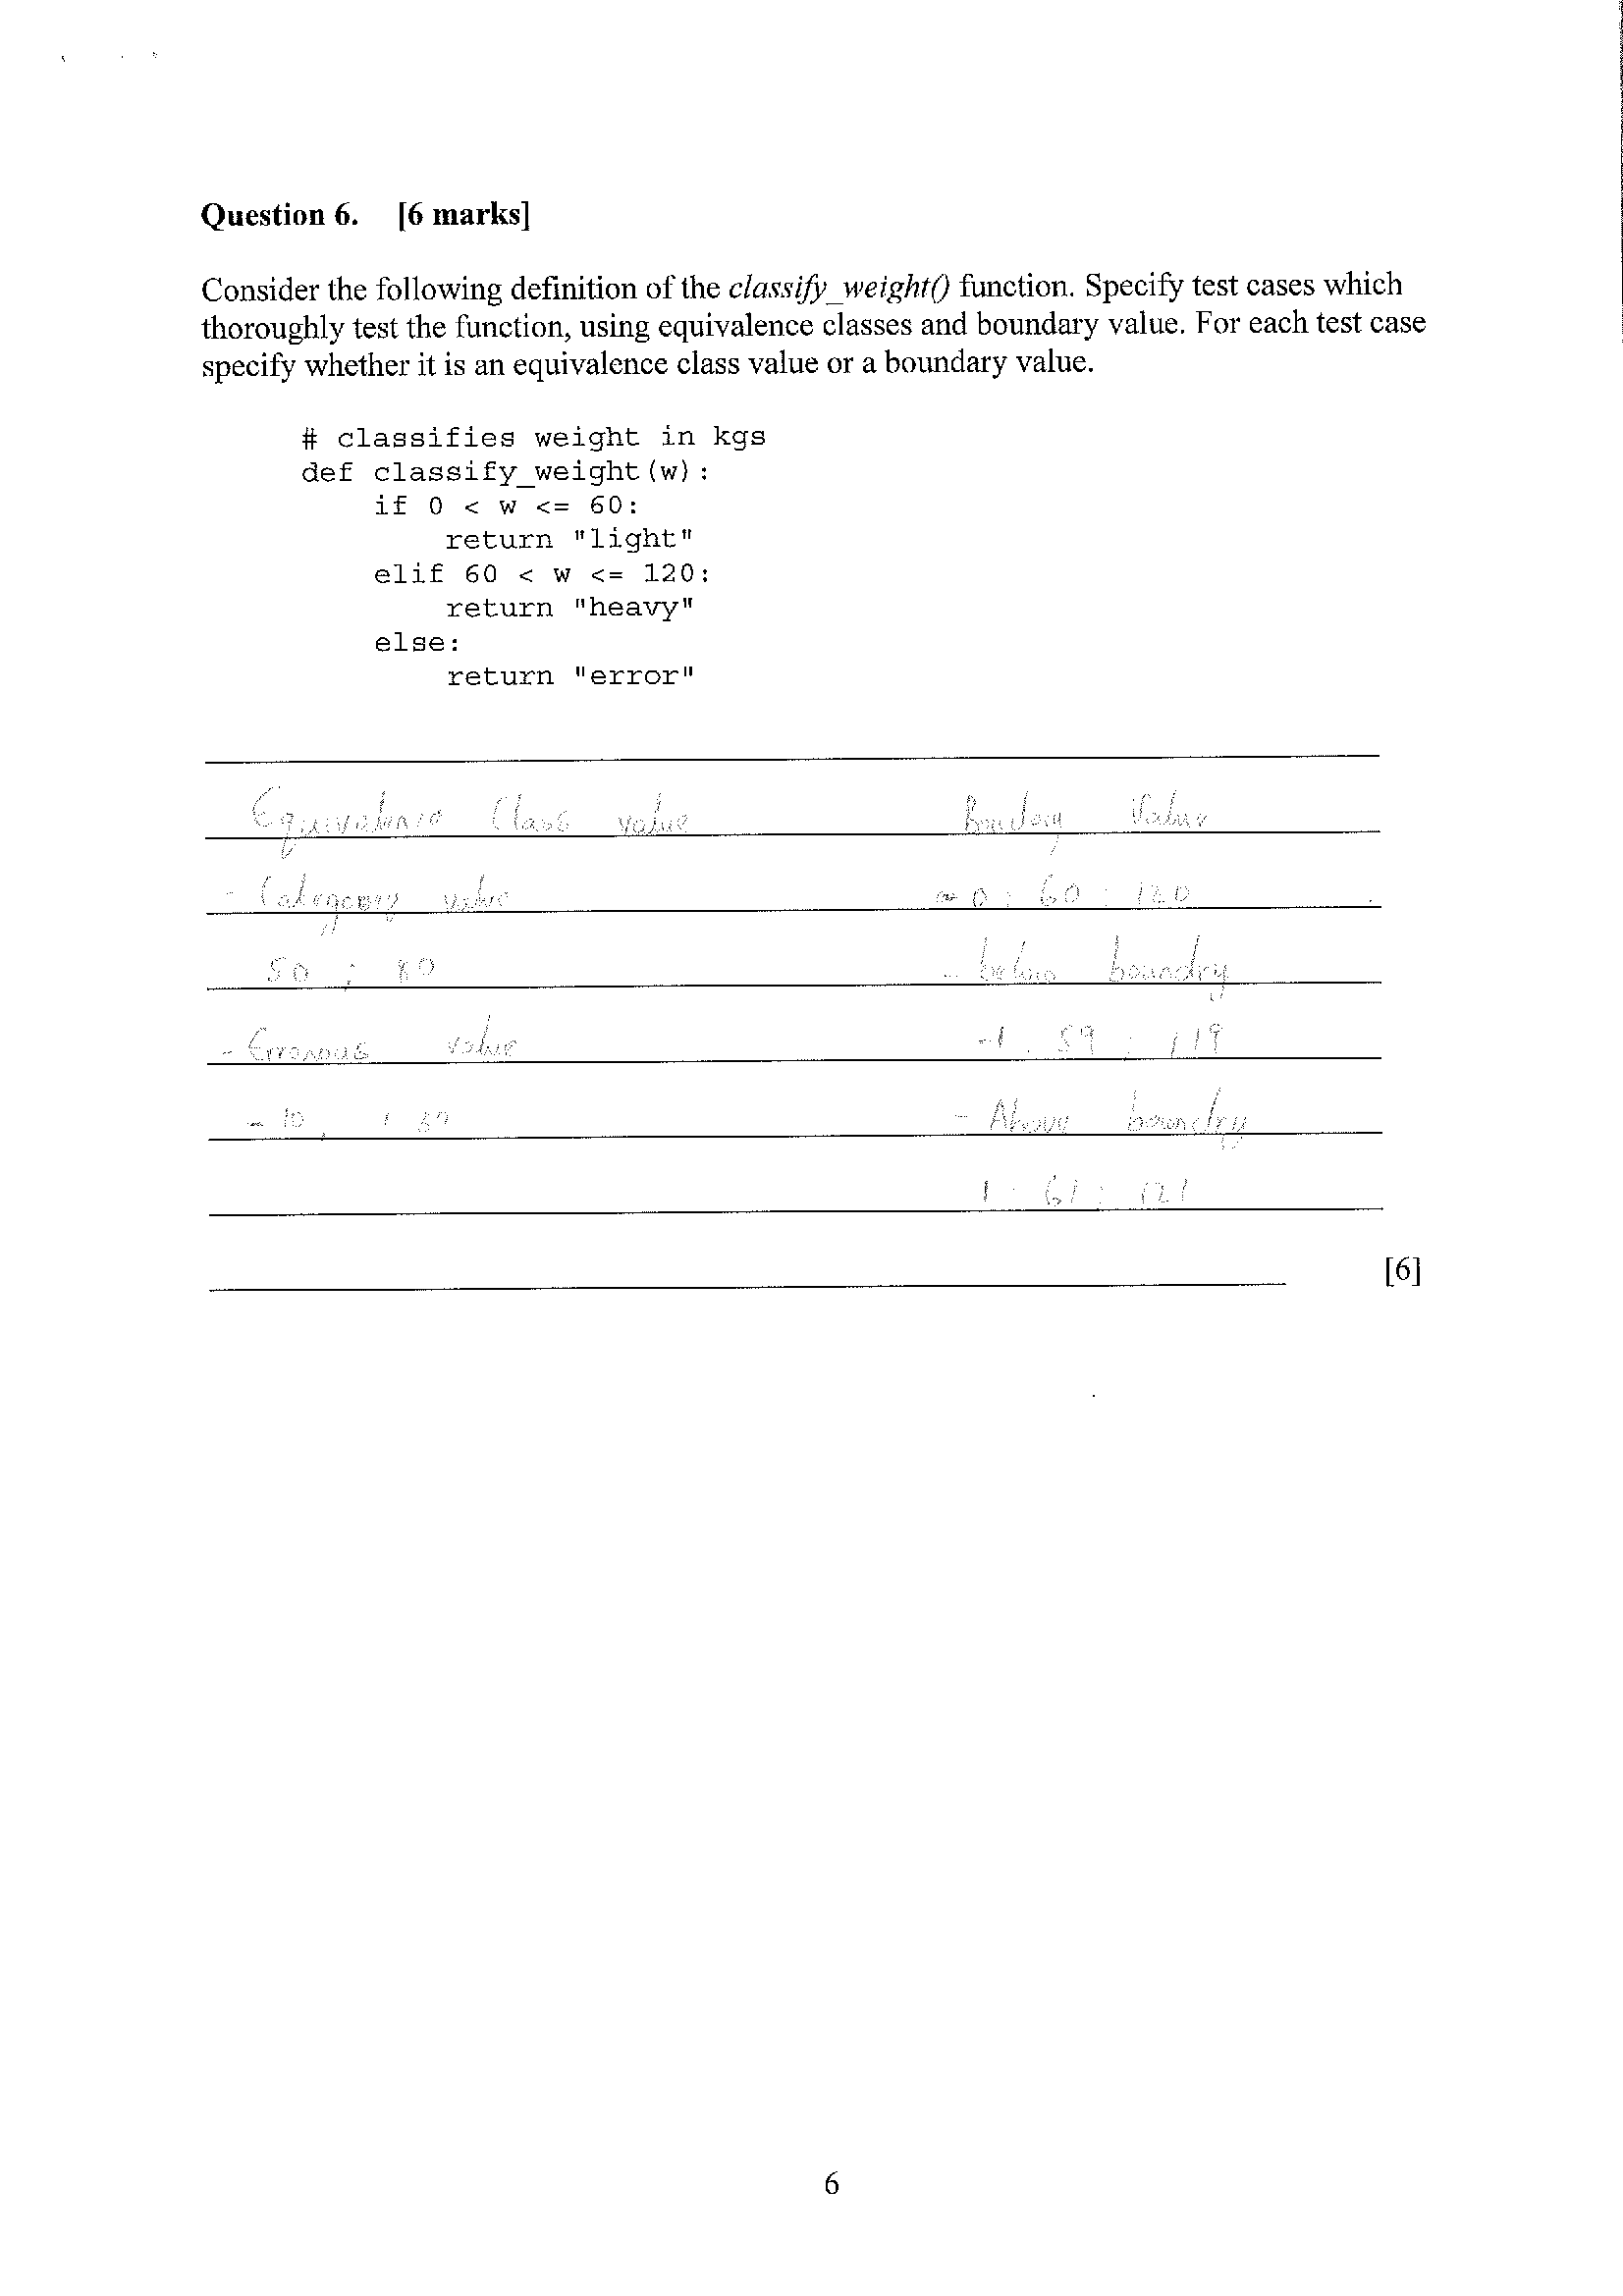 Question 6. [6 marks]
Consider the following definition of the classify_weight() function. Specify test cases which
thoroughly test the function, using equivalence classes and boundary value. For each test case
specify whether it is an equivalence class value or a boundary value.
# classifies weight in kgs
def classify_weight(w):
    if 0 < w <= 60:
        return "light"
    elif 60 < w <= 120:
        return "heavy"
    else:
        return "error"
Equivalence Class value Boundary Value
- Category value - 0 ; 60 ; 120
50 ; 80 - below boundry
- Erronous value -1 ; 59 ; 119
- 10, - Above boundry
1 ; 61 ; 121
[6]
6